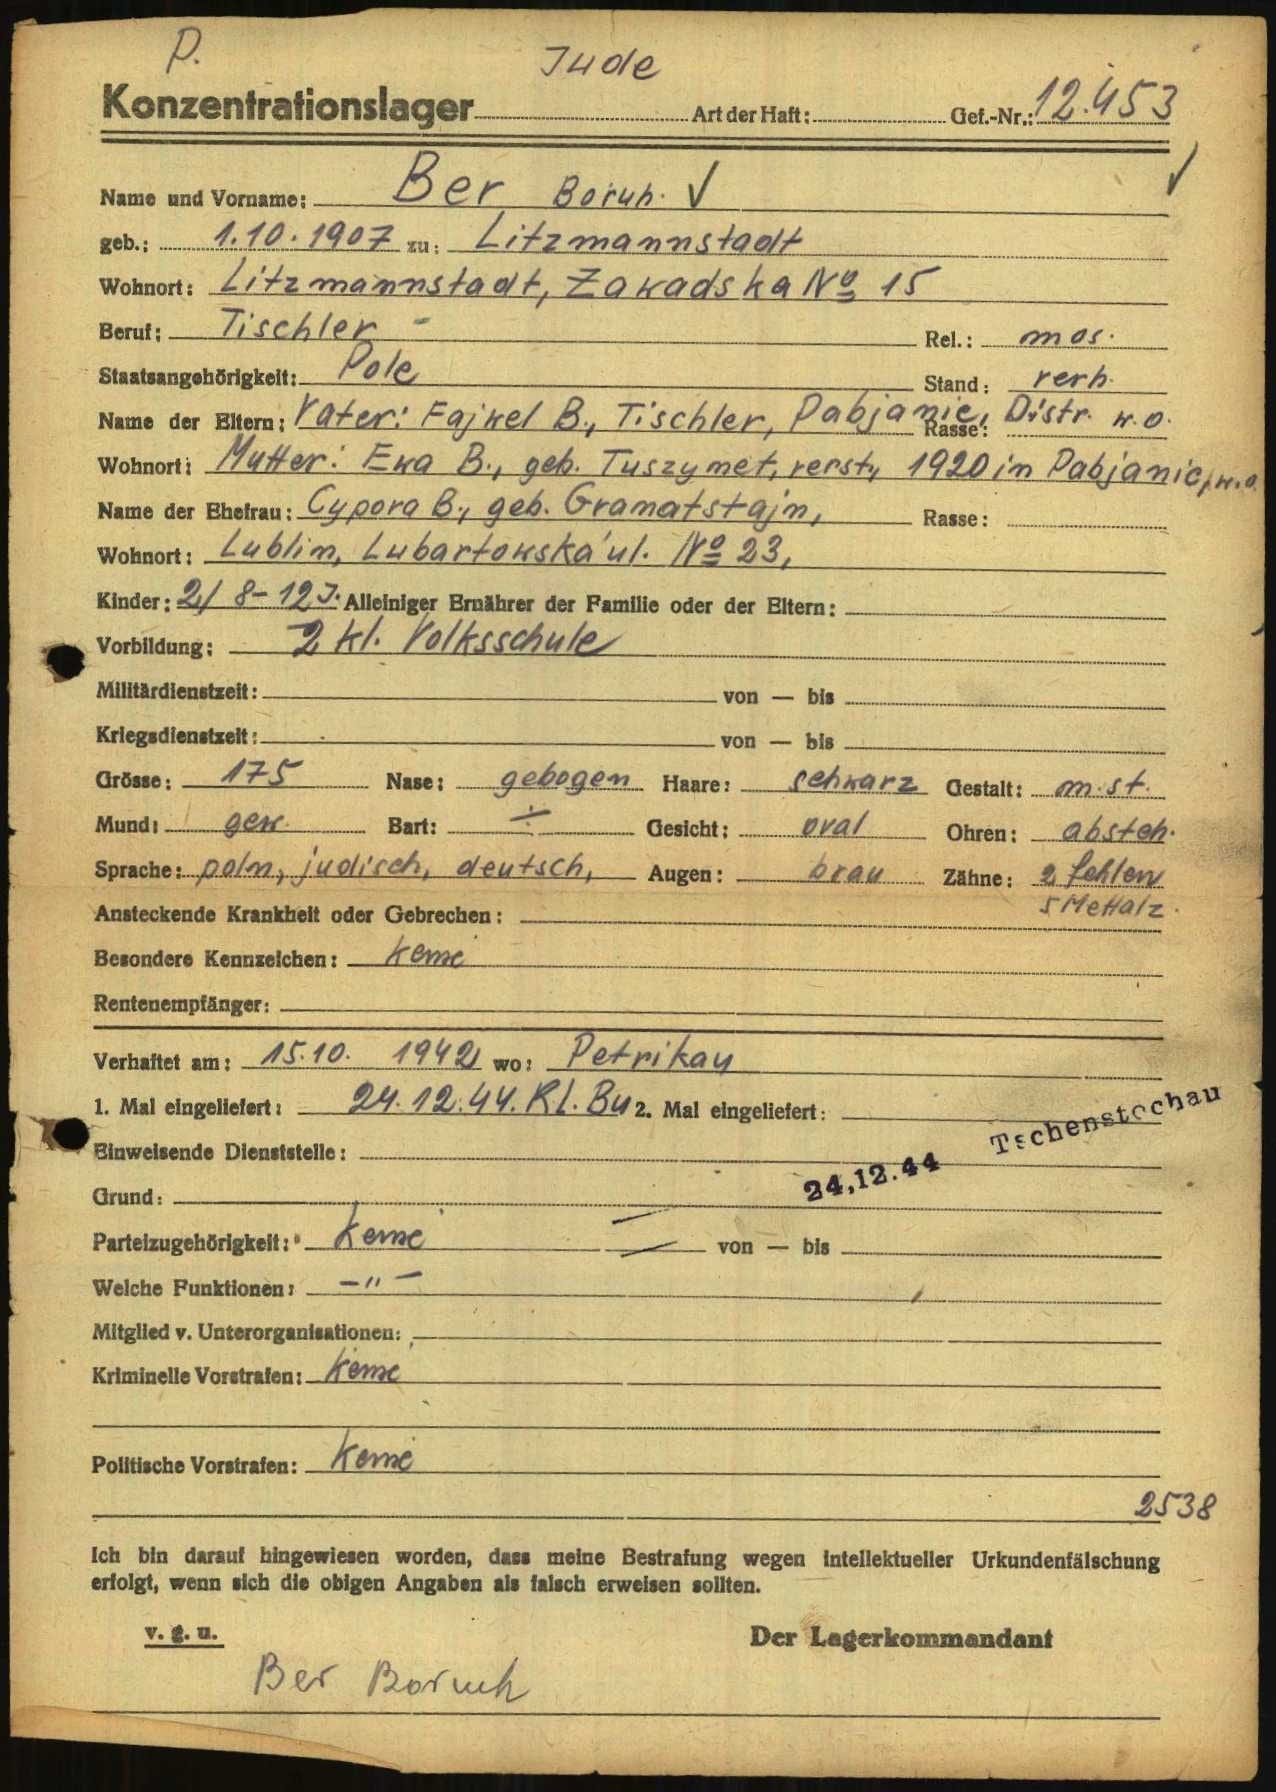 P. Jude
Konzentrationslager Art der Haft: Gef.-Nr.: 12.453
Name und Vorname: Ber Boruh. ✓
geb.: 1.10.1907 zu: Litzmannstadt
Wohnort: Litzmannstadt, Zawadska No 15
Beruf: Tischler - Rel.: mos.
Staatsangehörigkeit: Pole Stand: verh.
Name der Eltern: Vater: Fajwel B., Tischler, Pabjanic, Distr. w.o. Rasse:
Wohnort: Mutter: Ewa B., geb. Tuszymet, verst., 1920 in Pabjanic, w.o.
Name der Ehefrau: Cypora B., geb. Gramatstajn, Rasse:
Wohnort: Lublin, Lubartowska ul. No 23,
Kinder: 2/ 8-12 J. Alleiniger Ernährer der Familie oder der Eltern:
Vorbildung: 2 kl. Volksschule
Militärdienstzeit: von — bis
Kriegsdienstzeit: von — bis
Grösse: 175 Nase: gebogen Haare: schwarz Gestalt: m.st.
Mund: gew. Bart: ÷ Gesicht: oval Ohren: absteh.
Sprache: poln, judisch, deutsch, Augen: brau Zähne: 2 fehlen
5 Mettalz.
Ansteckende Krankheit oder Gebrechen:
Besondere Kennzeichen: Keine
Rentenempfänger:
Verhaftet am: 15.10. 1942 wo: Petrikau
1. Mal eingeliefert: 24.12.44. Kl. Bu 2. Mal eingeliefert:
Tschenstochau
Einweisende Dienststelle:
24.12.44
Grund:
Parteizugehörigkeit: Keine von — bis
Welche Funktionen: -"-
Mitglied v. Unterorganisationen:
Kriminelle Vorstrafen: Keine
Politische Vorstrafen: Keine
2538
Ich bin darauf hingewiesen worden, dass meine Bestrafung wegen intellektueller Urkundenfälschung
erfolgt, wenn sich die obigen Angaben als falsch erweisen sollten.
v. g. u. Der Lagerkommandant
Ber Boruch